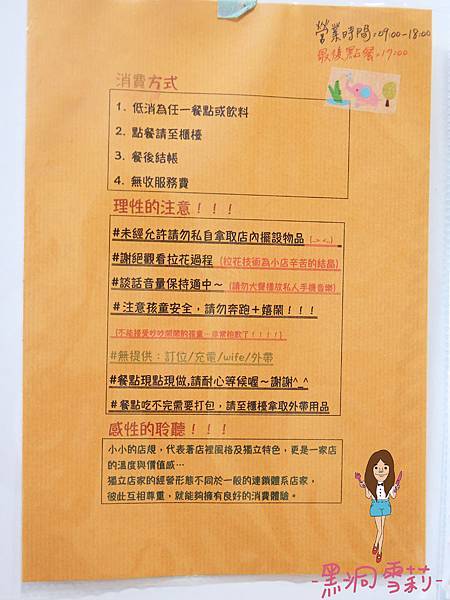 營業時間:09:00-18:00
最後點餐:17:00
消費方式
1. 低消為任一餐點或飲料
2. 點餐請至櫃檯
3. 餐後結帳
4. 無收服務費
理性的注意！！！
#未經允許請勿私自拿取店內擺設物品
#謝絕觀看拉花過程 (拉花技術為小店辛苦的結晶)
#談話音量保持適中～ (請勿大聲播放私人手機音樂)
#注意孩童安全，請勿奔跑＋嬉鬧！！！
(不能接受吵吵鬧鬧的孩童…非常抱歉了！！！！)
#無提供：訂位/充電/wife/外帶
#餐點現點現做,請耐心等候喔～謝謝^_^
#餐點吃不完需要打包，請至櫃檯拿取外帶用品
感性的聆聽！！！
小小的店規，代表著店裡風格及獨立特色，更是一家店
的溫度與價值感…
獨立店家的經營形態不同於一般的連鎖體系店家，
彼此互相尊重，就能夠擁有良好的消費體驗。
-黑洞雪莉-